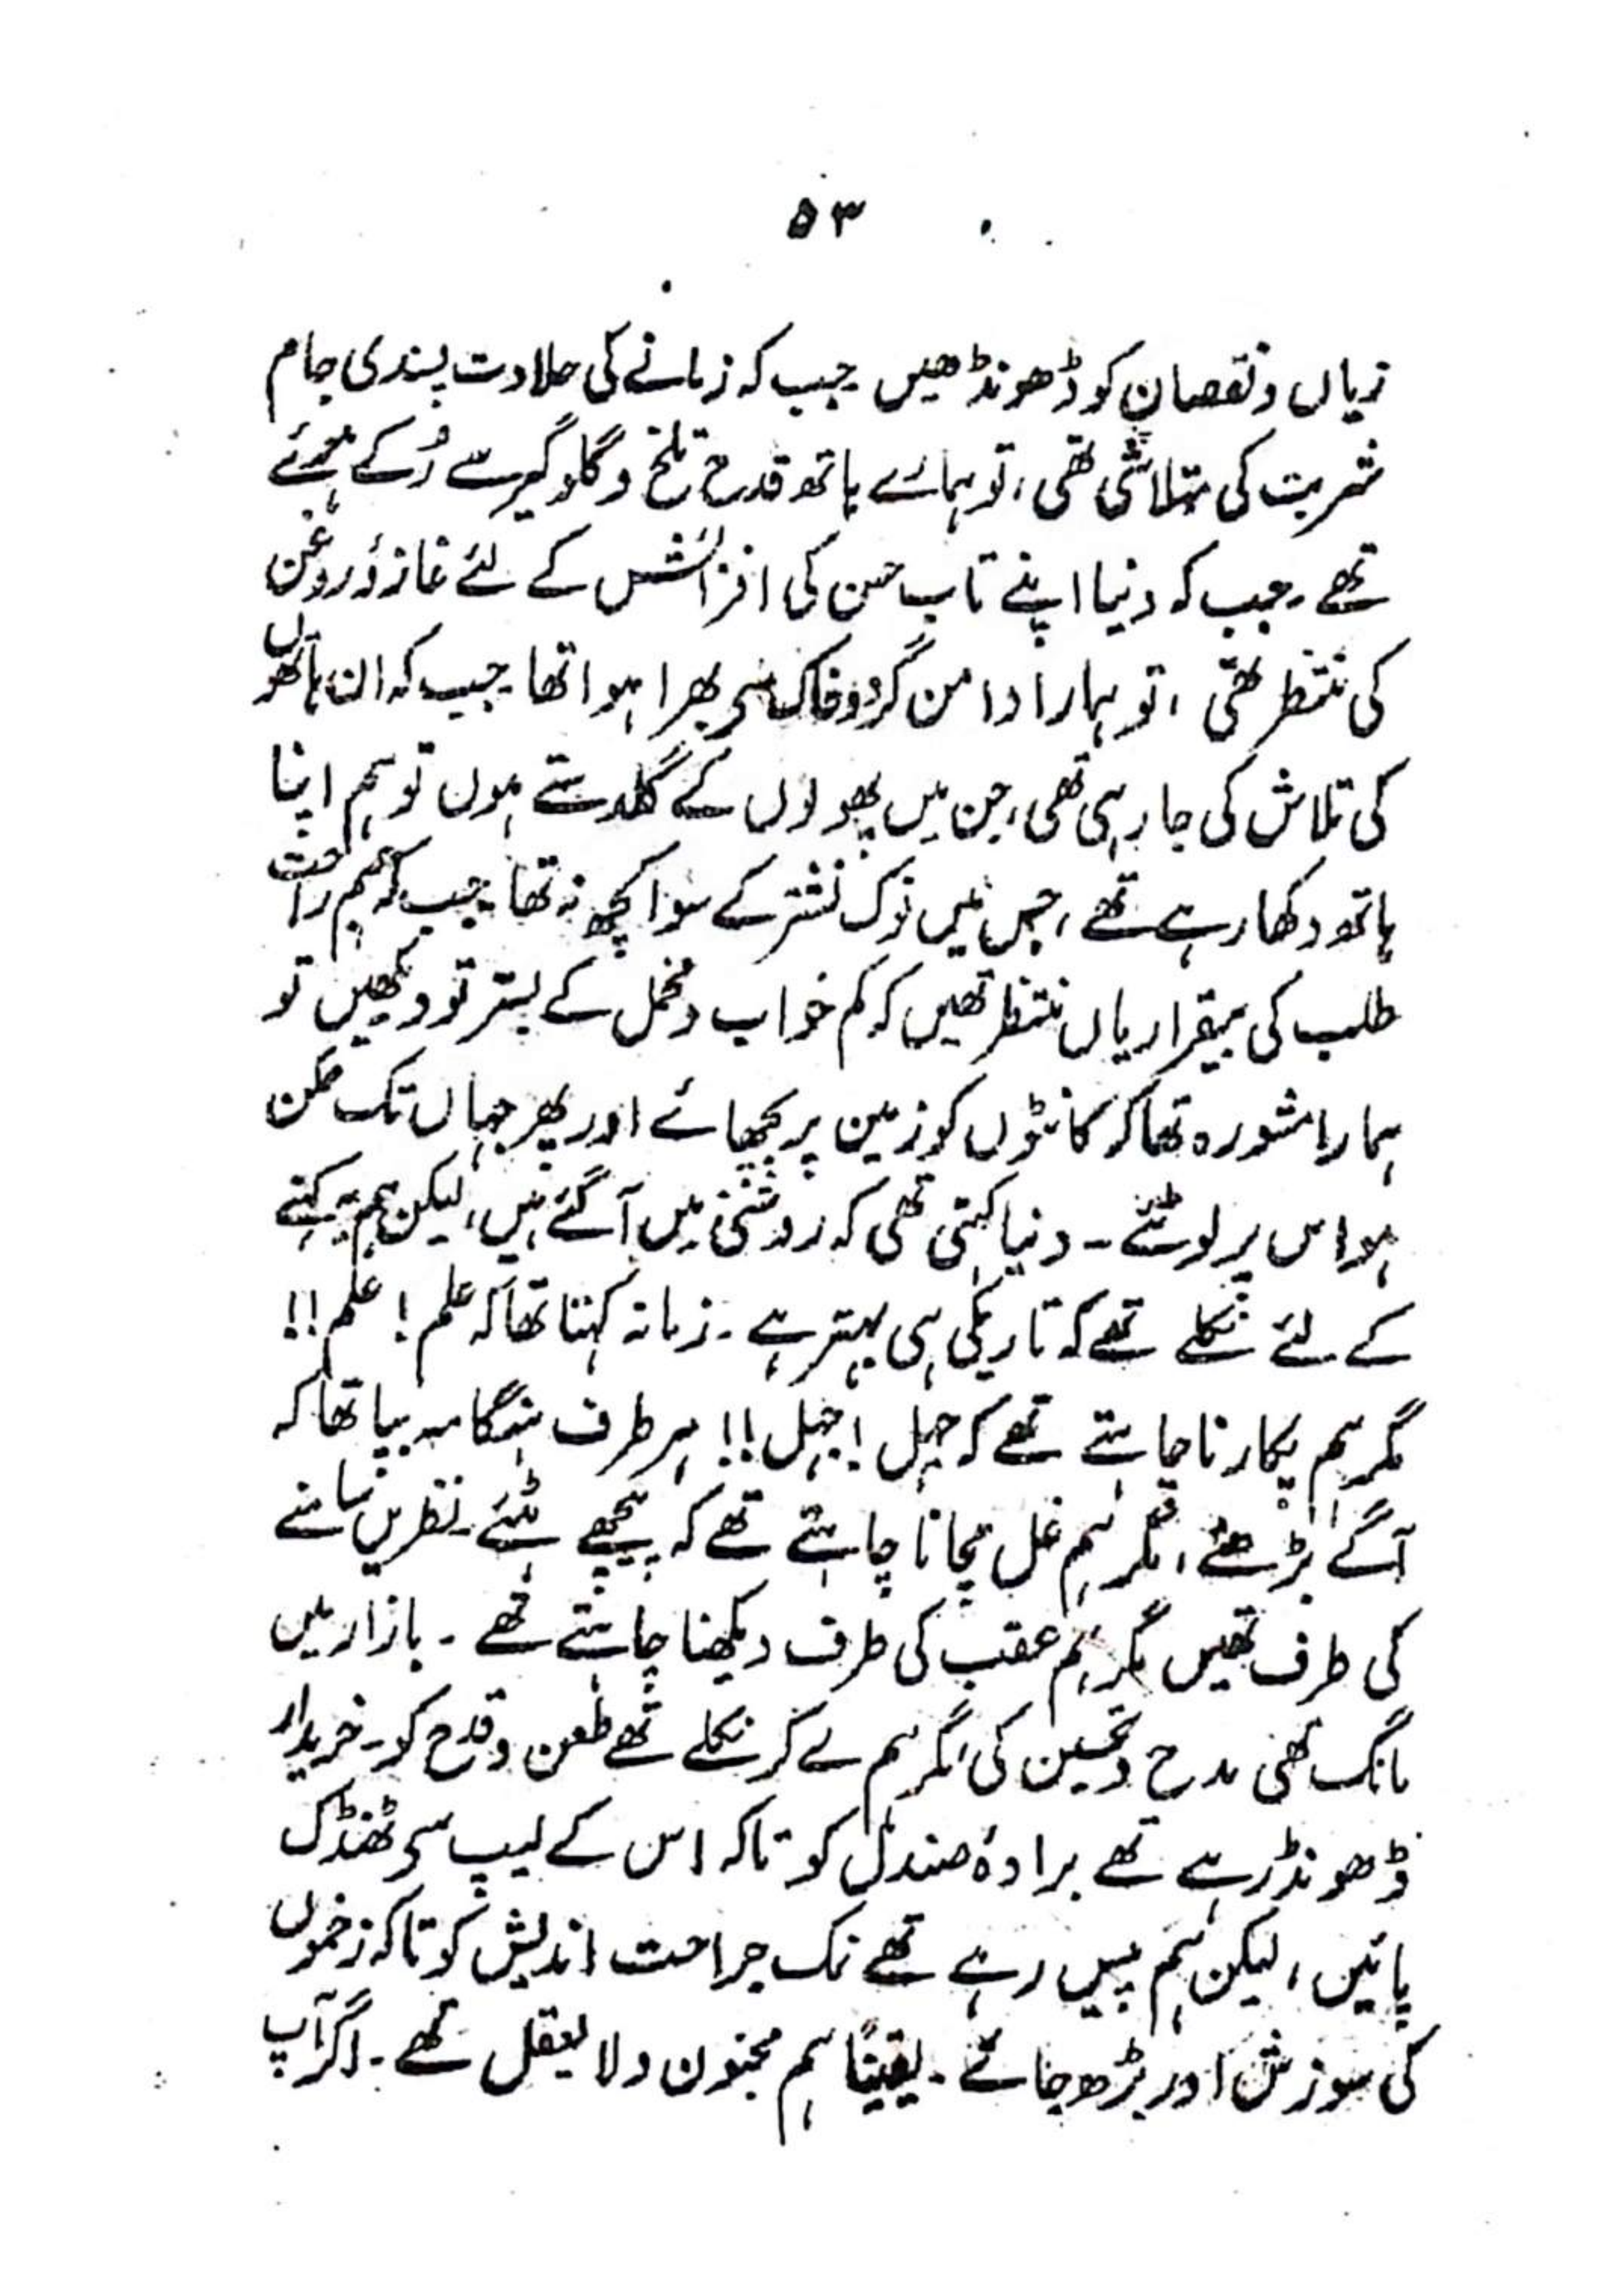 ۵۳
زیاں و نقصان کو ڈھونڈھیں جب کہ زمانے کی حلاوت پسندی جام
شربت کی متلاشی تھی، تو ہمارے ہاتھ قدح تلخ و گلوگیر سے رُکے ہوئے
تھے۔ جب کہ دنیا اپنے تاب حسن کی افزائش کے لئے غازۂ روغن
کی منتظر تھی، تو ہمارا دامن گرد و خاک سے بھرا ہوا تھا۔ جب کہ ان ہاتھوں
کی تلاش کی جا رہی تھی، جن میں پھولوں کے گلدستے ہوں تو ہم اپنا
ہاتھ دکھا رہے تھے، جس میں نوک نشتر کے سوا کچھ نہ تھا۔ جب کہ ہم راحت
طلب کی بیقراریاں منتظر تھیں کہ کم خواب و مخمل کے بستر تو دیکھیں تو
ہمارا مشورہ تھا کہ کانٹوں کو زمین پر بچھائے اور پھر جہاں تک ممکن
ہو اس پر لوٹئے۔ دنیا کہتی تھی کہ روشنی میں آ گئے ہیں، لیکن ہم یہ کہنے
کے لئے نکلے تھے کہ تاریکی ہی بہتر ہے۔ زمانہ کہتا تھا کہ علم! علم!!
مگر ہم پکارنا چاہتے تھے کہ جہل! جہل!! ہر طرف ہنگامہ بپا تھا کہ
آگے بڑھئے، مگر ہم غل مچانا چاہتے تھے کہ پیچھے ہٹئے۔ نظریں سامنے
کی طرف تھیں مگر ہم عقب کی طرف دیکھنا چاہتے تھے۔ بازار میں
مانگ تھی مدح و تحسین کی، مگر ہم لے کر نکلے تھے طعن و قدح کو۔ خریدار
ڈھونڈ رہے تھے برادۂ صندل کو تاکہ اس کے لیپ سے ٹھنڈک
پائیں، لیکن ہم پیس رہے تھے نمک جراحت اندیش کو تاکہ زخموں
کی سوزش اور بڑھ جائے۔ یقیناً ہم مجنون و لا یعقل تھے۔ اگر آپ